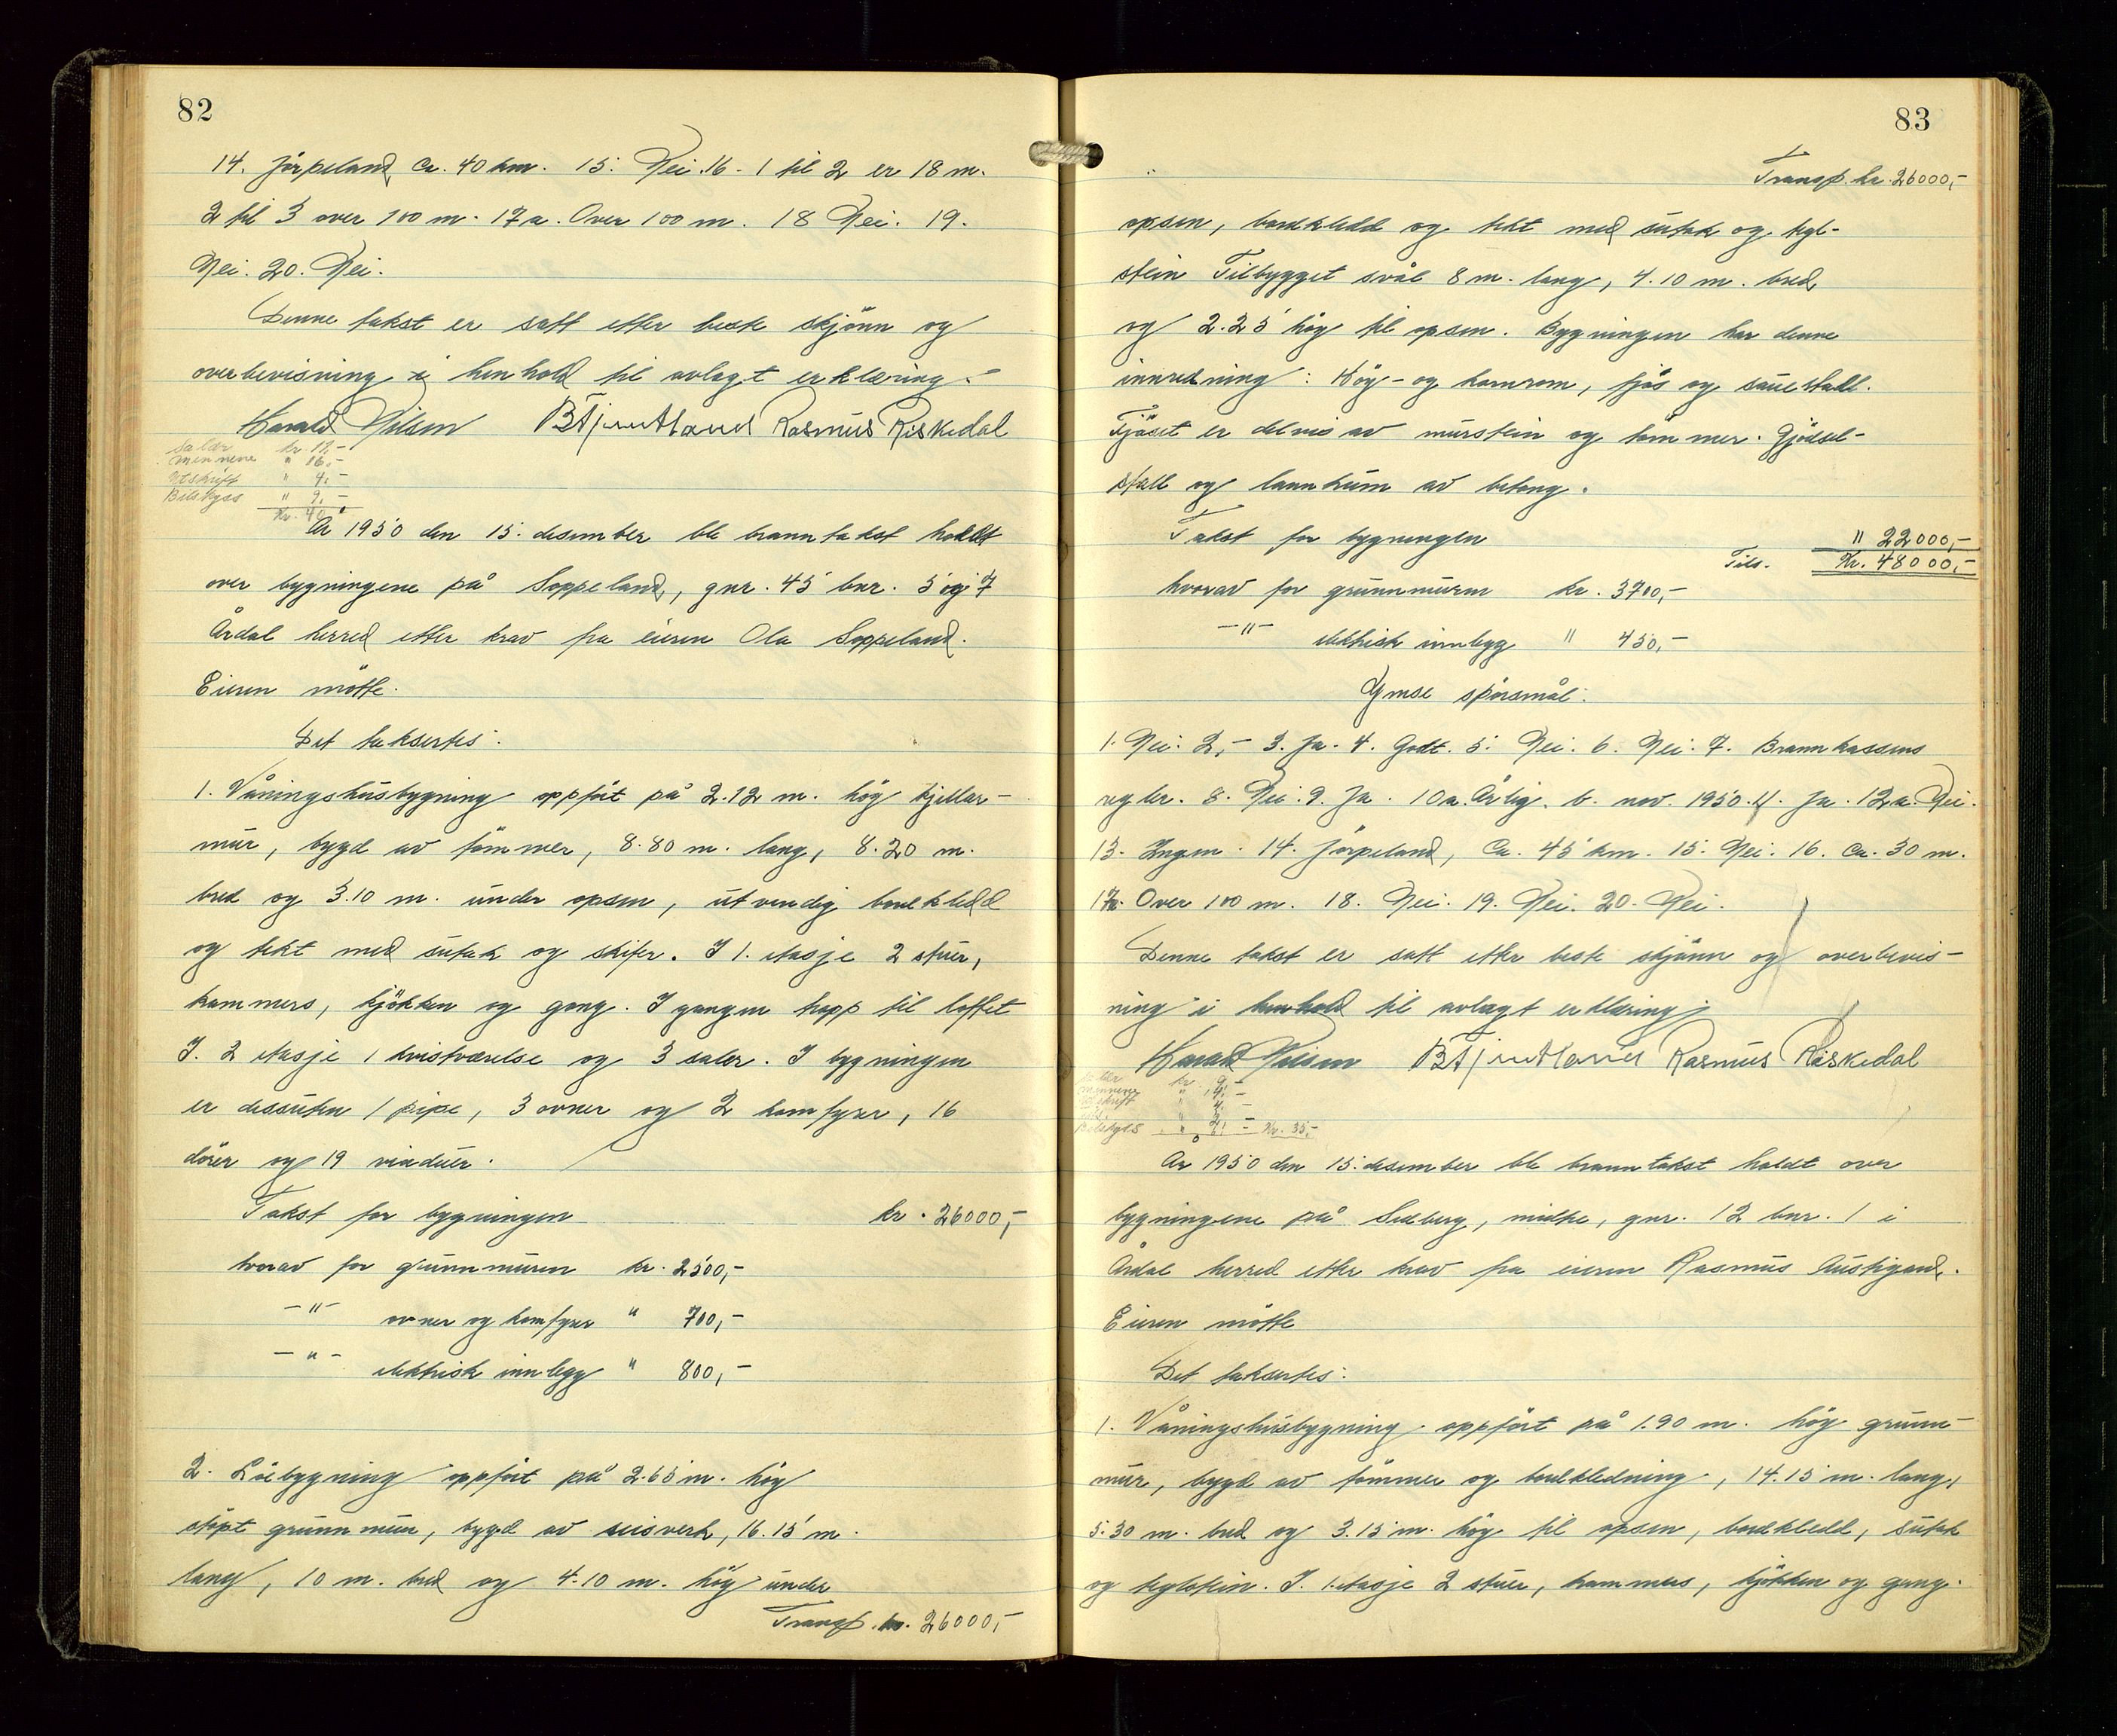 82
14. Jörpeland, Ca. 40 km. 15. Nei. 16. 1 til 2 er 18 m.
2 til 3 over 100 m. 17a. Over 100 m. 18 Nei. 19.
Nei. 20. Nei.
Denne takst er satt etter beste skjönn og
overbevisning i henhold til avlagt erklæring.
Harald Nilsen B Tjentland Rasmus Riskedal
Salær kr. 11,-
Mennene " 16,-
Utskrift " 4,-
Bilskyss " 9,-
Kr. 40
År 1950 den 15. desember ble branntakst holdt
over bygningene på Soppeland, gnr. 45 bnr. 5 og 7
Årdal herred etter krav fra eieren Ola Soppeland.
Eieren møtte.
Det taksertes:
1. Våningshusbygning oppfört på 2.12 m. hög kjellar-
mur, bygd av tömmer, 8.80 m. lang, 8.20 m.
bred og 3.10 m. under opsen, utvendig bordkledd
og tekt med sutak og skifer. I 1. etasje 2 stuer,
kammers, kjökken og gang. I gangen trapp til loftet
I. 2 etasje 1 kvistværelse og 3 saler. I bygningen
er dessuten 1 pipe, 3 ovner og 2 komfyrer, 16
dörer og 19 vinduer.
Takst for bygningen kr. 26000,-
hvorav for grunnmuren kr. 2500,-
-"- ovner og komfyrer " 700,-
-"- elektrisk innlegg " 800,-
2. Löebygning oppfört på 2.65 m. hög
stöpt grunnmur, bygd av reisverk, 16.15 m.
lang, 10 m. bred og 4.10 m. hög under
Transp. kr. 26000,-
83
Transp. kr. 26000,-
opsen, bordkledd og tekt med sutak og tegl-
stein Tilbygget svål 8 m. lang, 4.10 m. bred,
og 2.25 hög til opsen. Bygningen har denne
innredning: Höy- og kornrom, fjös og sauestall.
Fjöset er delvis av murstein og tömmer. Gjödsel-
stall og lannkum av betong.
Takst for bygningen " 22000,-
Tils. Kr. 48000,-
hvorav for grunnmuren kr. 3700,-
-"- elektrisk innlegg " 450,-
Ymse spörsmål:
1. Nei. 2,- 3. Ja. 4. Godt. 5. Nei. 6. Nei. 7. Brannkassens
regler. 8. Nei. 9. Ja. 10a. Årlig. b. nov. 1950. 11. Ja. 12a. Nei.
13. Ingen. 14. Jörpeland, Ca. 45 km. 15. Nei. 16. Ca. 30 m.
17a. Over 100 m. 18. Nei. 19. Nei. 20. Nei.
Denne takst er satt etter beste skjönn og overbevis-
ning i henhold til avlagt erklæring.
Harald Nilsen B Tjentland Rasmus Riskedal
Salær kr. 9,-
Mennene " 14,-
Utskrift " 4,-
Bilskyss - Kr. 35,-
År 1950 den 15. desember ble branntakst holdt over
bygningene på Sedberg, midtre, gnr. 12 bnr. 1 i
Årdal herred etter krav fra eieren Rasmus
Eieren møtte
Det taksertes:
1. Våningshusbygning oppfört på 1.90 m. hög grunn-
mur, bygd av tömmer og bordkledning, 14.15 m. lang,
5.30 m. bred og 3.15 m. hög til opsen, bordkledd, sutak
og teglstein. I. 1. etasje 2 stuer, kammers, kjökken og gang.